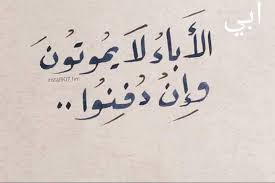 أبي
الأباءُ لَا يَموتُونَ
وَإنْ دُفِنُوا ..